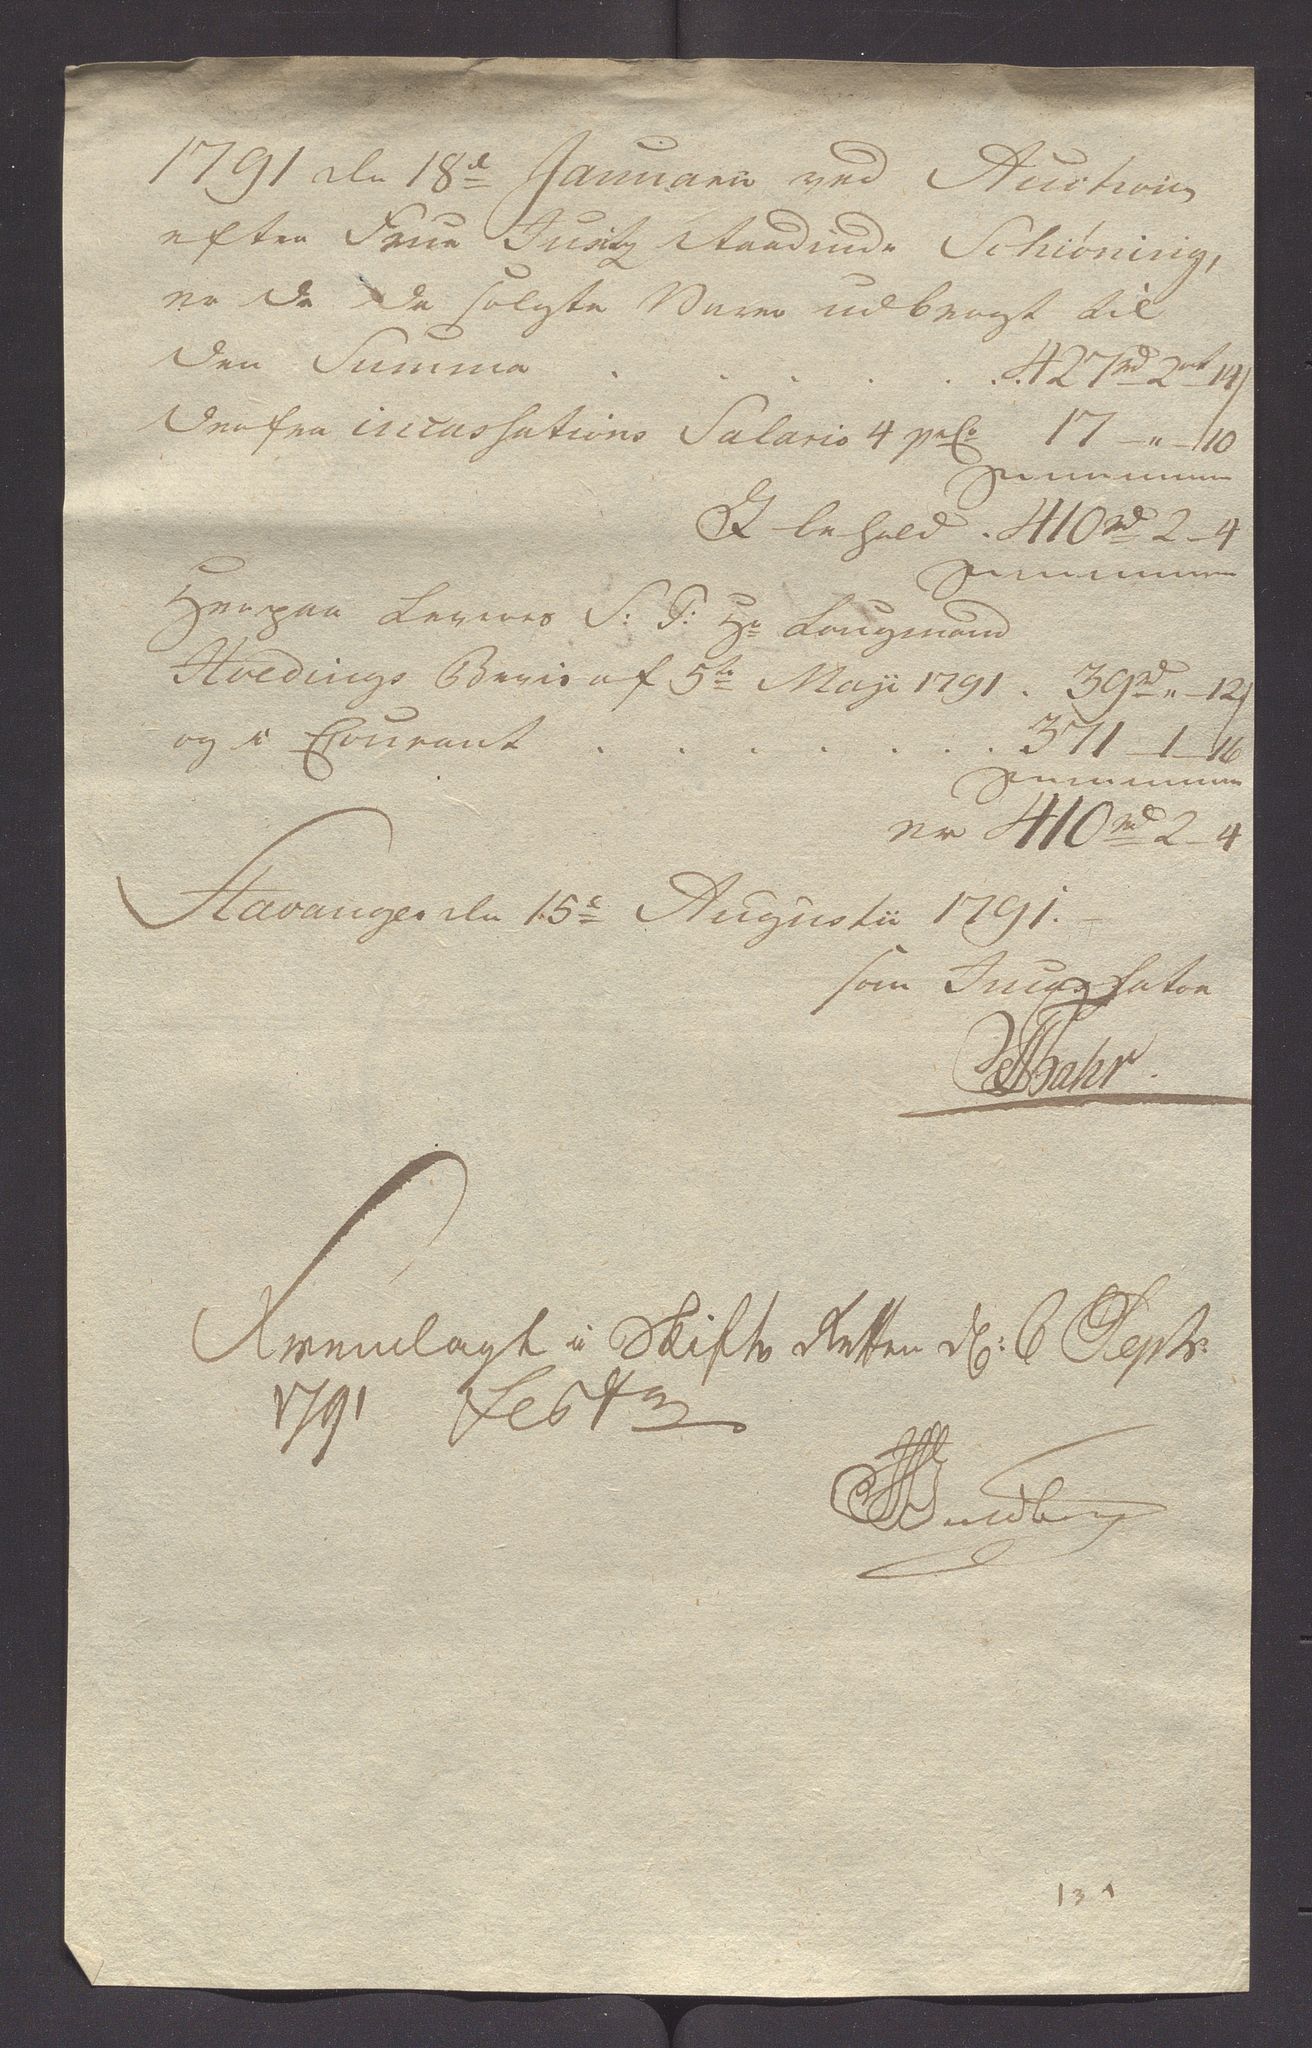 1791 den 18d Januarii ved Auction
efter Frue Justz Raadinde Schiøning,
er de da solgte Varer udbragt til
den Summa . . . . . . 427rd 2mk 14s
derfra incassations Salario 4 prCo 17 – " – 10
I behold . 410rd 2 – 4
Herpaa Leveres S: T: Hr Laugmand
Hvedings Bevis af 5te Maji 1791 . 39rd " – 12s
og i Courant . . . . . . . 371 – 1 – 16
er 410rd 2 – 4
Stavanger den 15e Augustii 1791. –
som Incassator
Bahr.
Fremlagt i Skifte Retten d: 6 Septr:
1791 Test
Sundberg
131